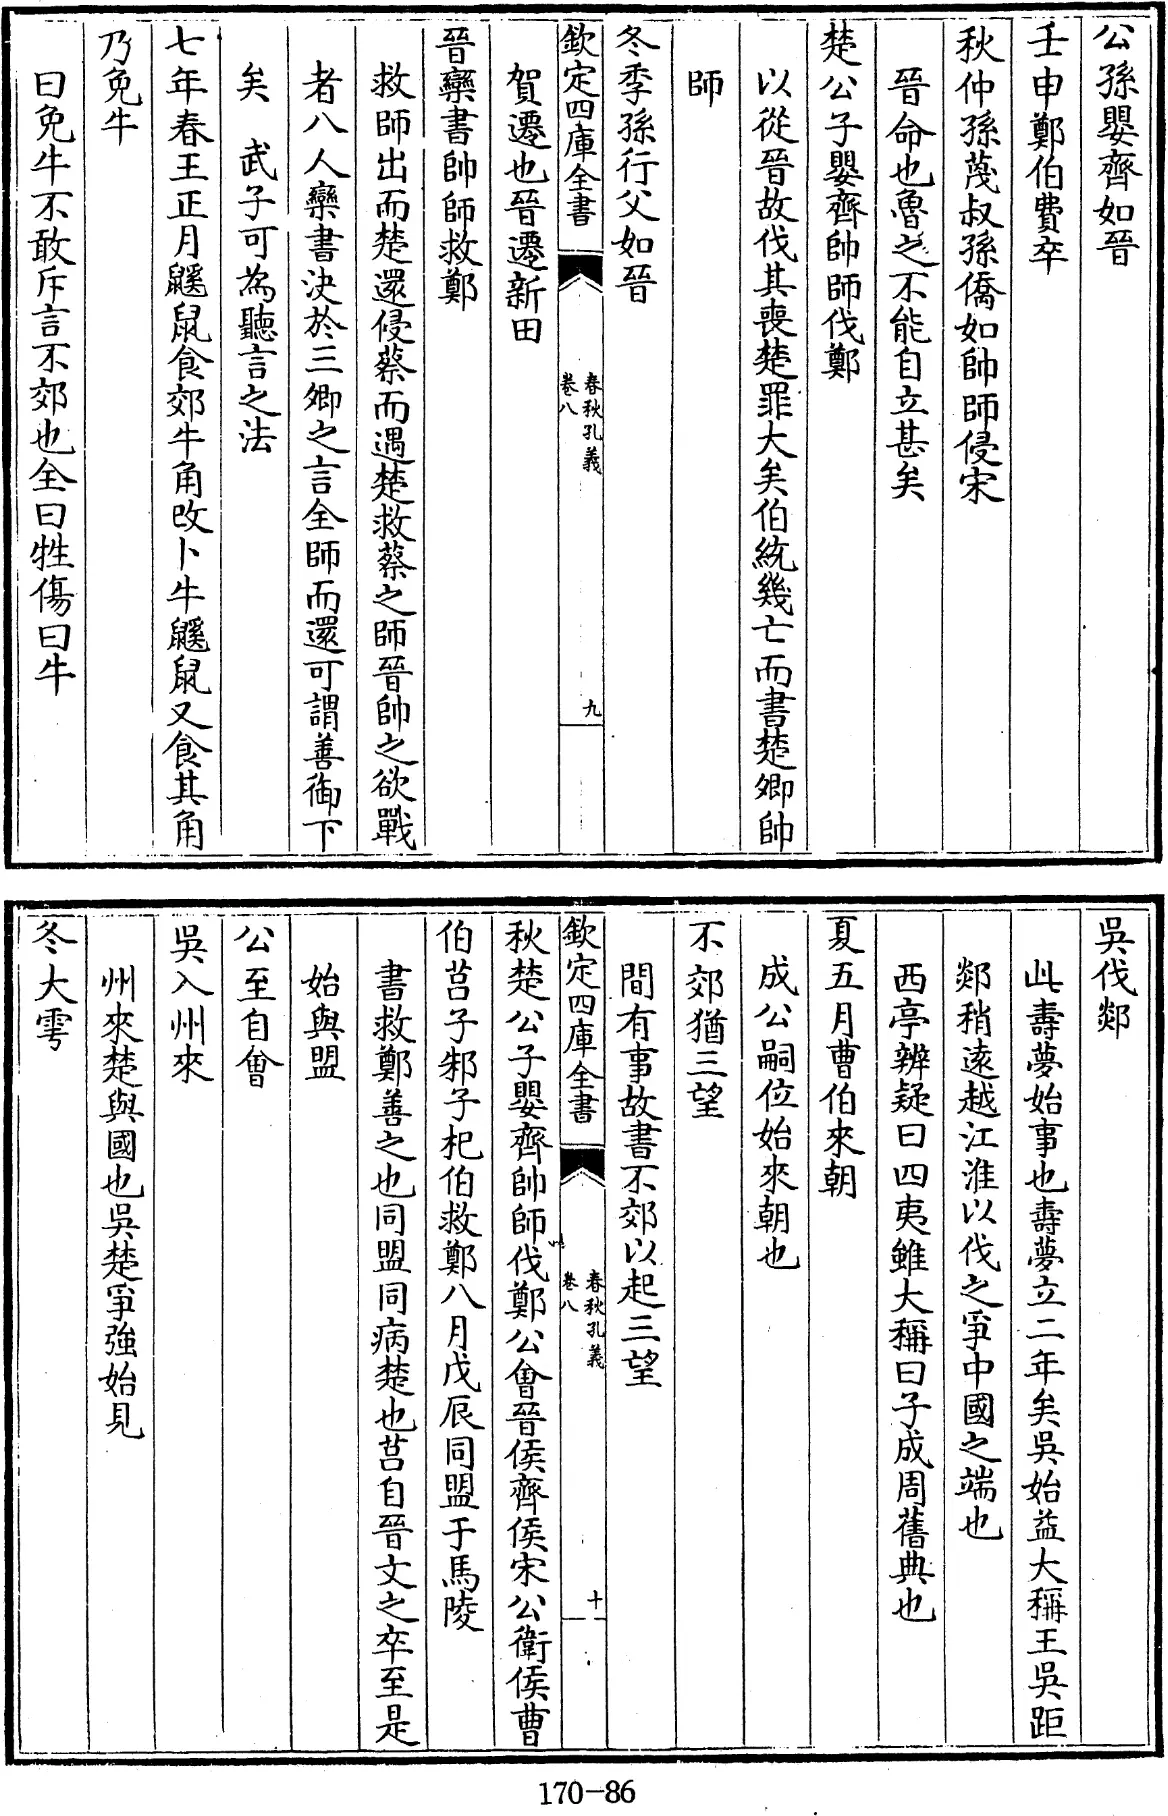 公孫嬰齊如晉
壬申鄭伯費卒
秋仲孫蔑叔孫僑如帥師侵宋
晉命也魯之不能自立甚矣
楚公子嬰齊帥師伐鄭
以從晉故伐其喪楚罪大矣伯統幾亡而書楚卿帥
師
冬季孫行父如晉
欽定四庫全書
春秋孔義
卷八
九
賀遷也晉遷新田
晉欒書帥師救鄭
救師出而楚還侵蔡而遇楚救蔡之師晉帥之欲戰
者八人欒書決於三卿之言全師而還可謂善御下
矣 武子可為聽言之法
七年春王正月鼷鼠食郊牛角改卜牛鼷鼠又食其角
乃免牛
曰免牛不敢斥言不郊也全曰牲傷曰牛
吳伐郯
此壽夢始事也壽夢立二年矣吳始益大稱王吳距
郯稍遠越江淮以伐之爭中國之端也
西亭辨疑曰四夷雖大稱曰子成周舊典也
夏五月曹伯來朝
成公嗣位始來朝也
不郊猶三望
間有事故書不郊以起三望
欽定四庫全書
春秋孔義
卷八
十
秋楚公子嬰齊帥師伐鄭公會晉侯齊侯宋公衛侯曹
伯莒子邾子杞伯救鄭八月戊辰同盟于馬陵
書救鄭善之也同盟同病楚也莒自晉文之卒至是
始與盟
公至自會
吳入州來
州來楚與國也吳楚爭強始見
冬大雩
170-86